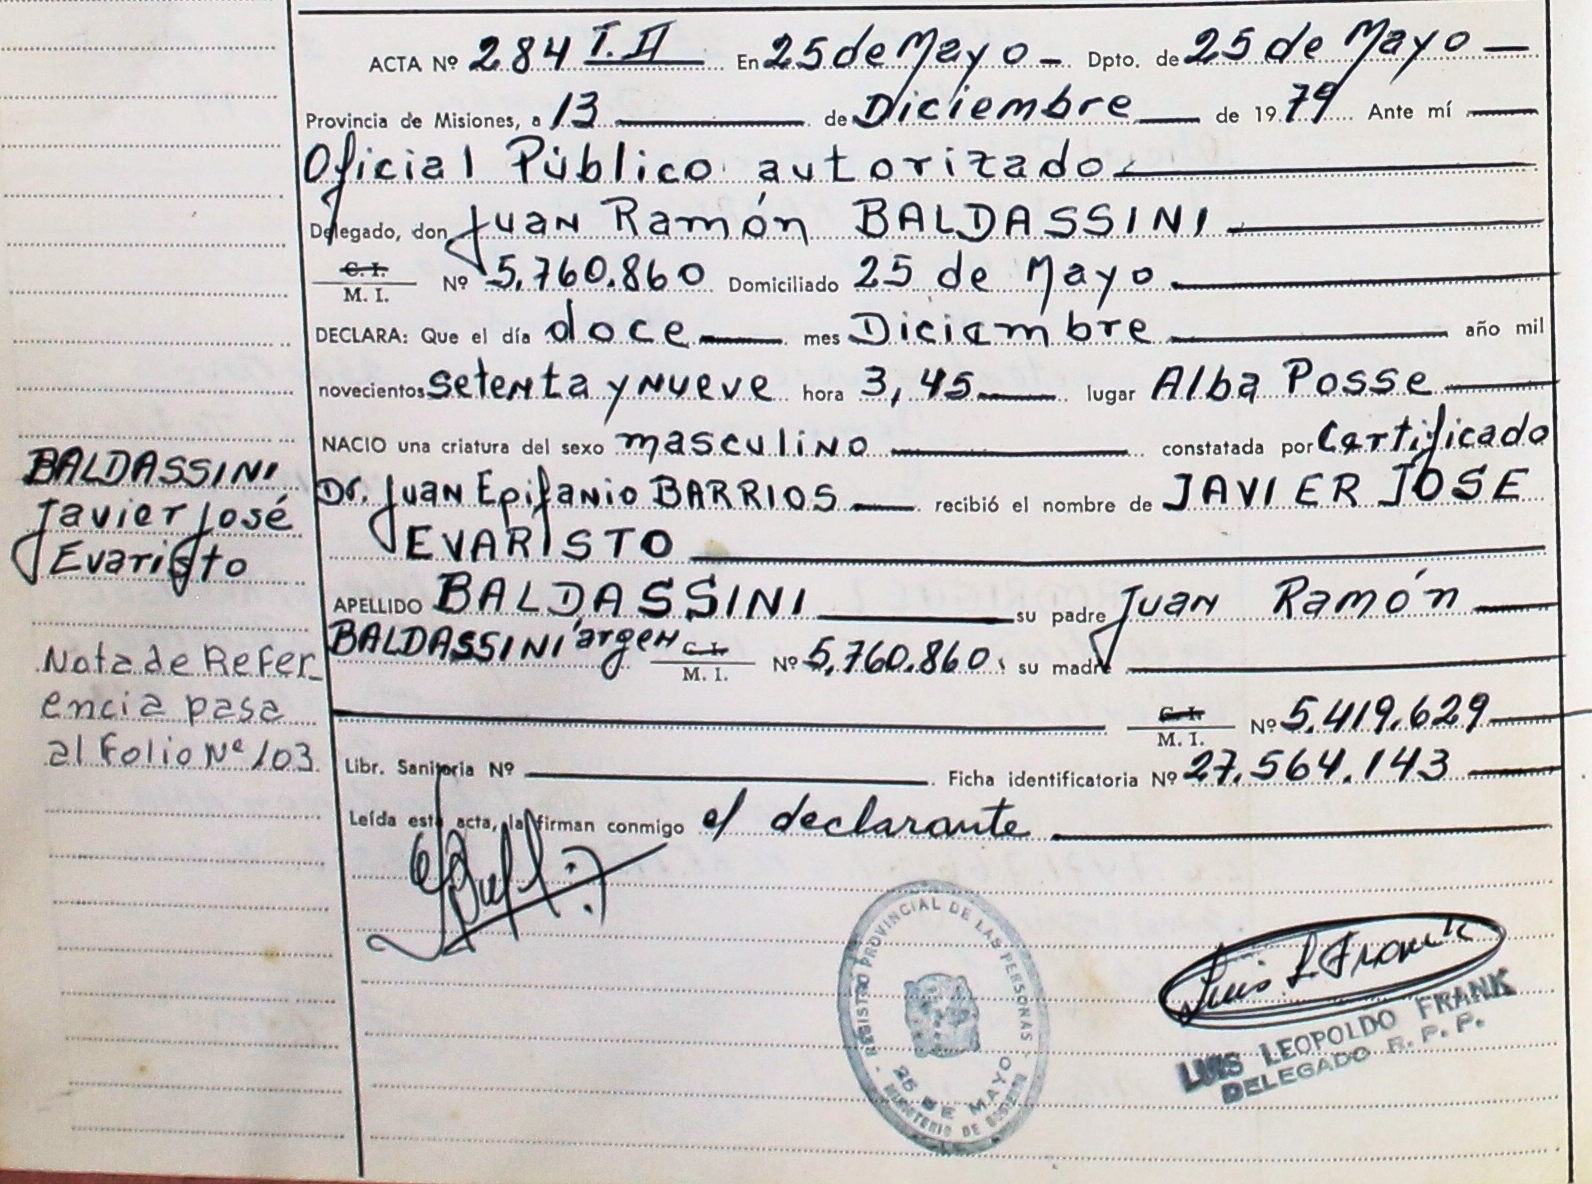 ACTA Nº 284 T. II En 25 de Mayo - Dpto. de 25 de Mayo -
Provincia de Misiones, a 13 de Diciembre de 1979 Ante mí
Oficial Público autorizado
Delegado, don Juan Ramón BALDASSINI
C. I. M. I. Nº 5.760.860 Domiciliado 25 de Mayo
DECLARA: Que el día doce mes Diciembre año mil
novecientos setenta y nueve hora 3,45 lugar Alba Posse
NACIO una criatura del sexo masculino constatada por Certificado
Dr. Juan Epifanio BARRIOS recibió el nombre de JAVIER JOSE
EVARISTO
APELLIDO BALDASSINI su padre Juan Ramón
BALDASSINI argen C. I. M. I. Nº 5.760.860 su madre
C. I. M. I. Nº 5.419.629
Libr. Sanitaria Nº Ficha identificatoria Nº 27.564.143
Leída esta acta, la firman conmigo el declarante
BALDASSINI
Javier José
Evaristo
Nota de Refer_
encia pasa
al Folio Nº 103
REGISTRO PROVINCIAL DE LAS PERSONAS
25 DE MAYO
MINISTERIO DE GOBIERNO
Luis L Frank
LUIS LEOPOLDO FRANK
DELEGADO R. P. P.